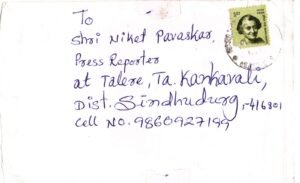 To
Shri Niket Pavaskar,
Press Reporter
at Talere, Ta. Kankavali,
Dist. Sindhudurg,-416801
Cell No. 9860927199